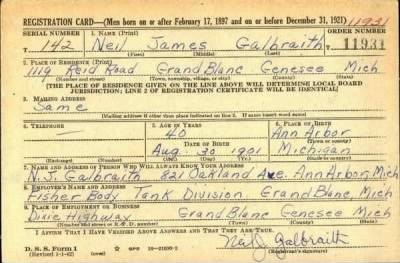 REGISTRATION CARD—(Men born on or after February 17, 1897 and on or before December 31, 1921) 11931
SERIAL NUMBER 1. NAME (Print) ORDER NUMBER
T 142 Neil James Galbraith 11931
(First) (Middle) (Last)
2. PLACE OF RESIDENCE (Print)
1119 Reid Road Grand Blanc Genesee Mich
(Number and street) (Town, township, village, or city) (County) (State)
[THE PLACE OF RESIDENCE GIVEN ON THE LINE ABOVE WILL DETERMINE LOCAL BOARD
JURISDICTION; LINE 2 OF REGISTRATION CERTIFICATE WILL BE IDENTICAL]
3. MAILING ADDRESS
Same
[Mailing address if other than place indicated on line 2. If same insert word same]
4. TELEPHONE 5. AGE IN YEARS 6. PLACE OF BIRTH
40 Ann Arbor
DATE OF BIRTH (Town or county)
Aug. 30 1901 Michigan
(Exchange) (Number) (Mo.) (Day) (Yr.) (State or country)
7. NAME AND ADDRESS OF PERSON WHO WILL ALWAYS KNOW YOUR ADDRESS
N. J. Galbraith 821 Oakland Ave. Ann Arbor, Mich
8. EMPLOYER'S NAME AND ADDRESS
Fisher Body Tank Division Grand Blanc, Mich
9. PLACE OF EMPLOYMENT OR BUSINESS
Dixie Highway Grand Blanc Genesee Mich
(Number and street or R. F. D. number) (Town) (County) (State)
I AFFIRM THAT I HAVE VERIFIED ABOVE ANSWERS AND THAT THEY ARE TRUE.
D. S. S. Form 1
(Revised 1-1-42) (over)
Neil J Galbraith